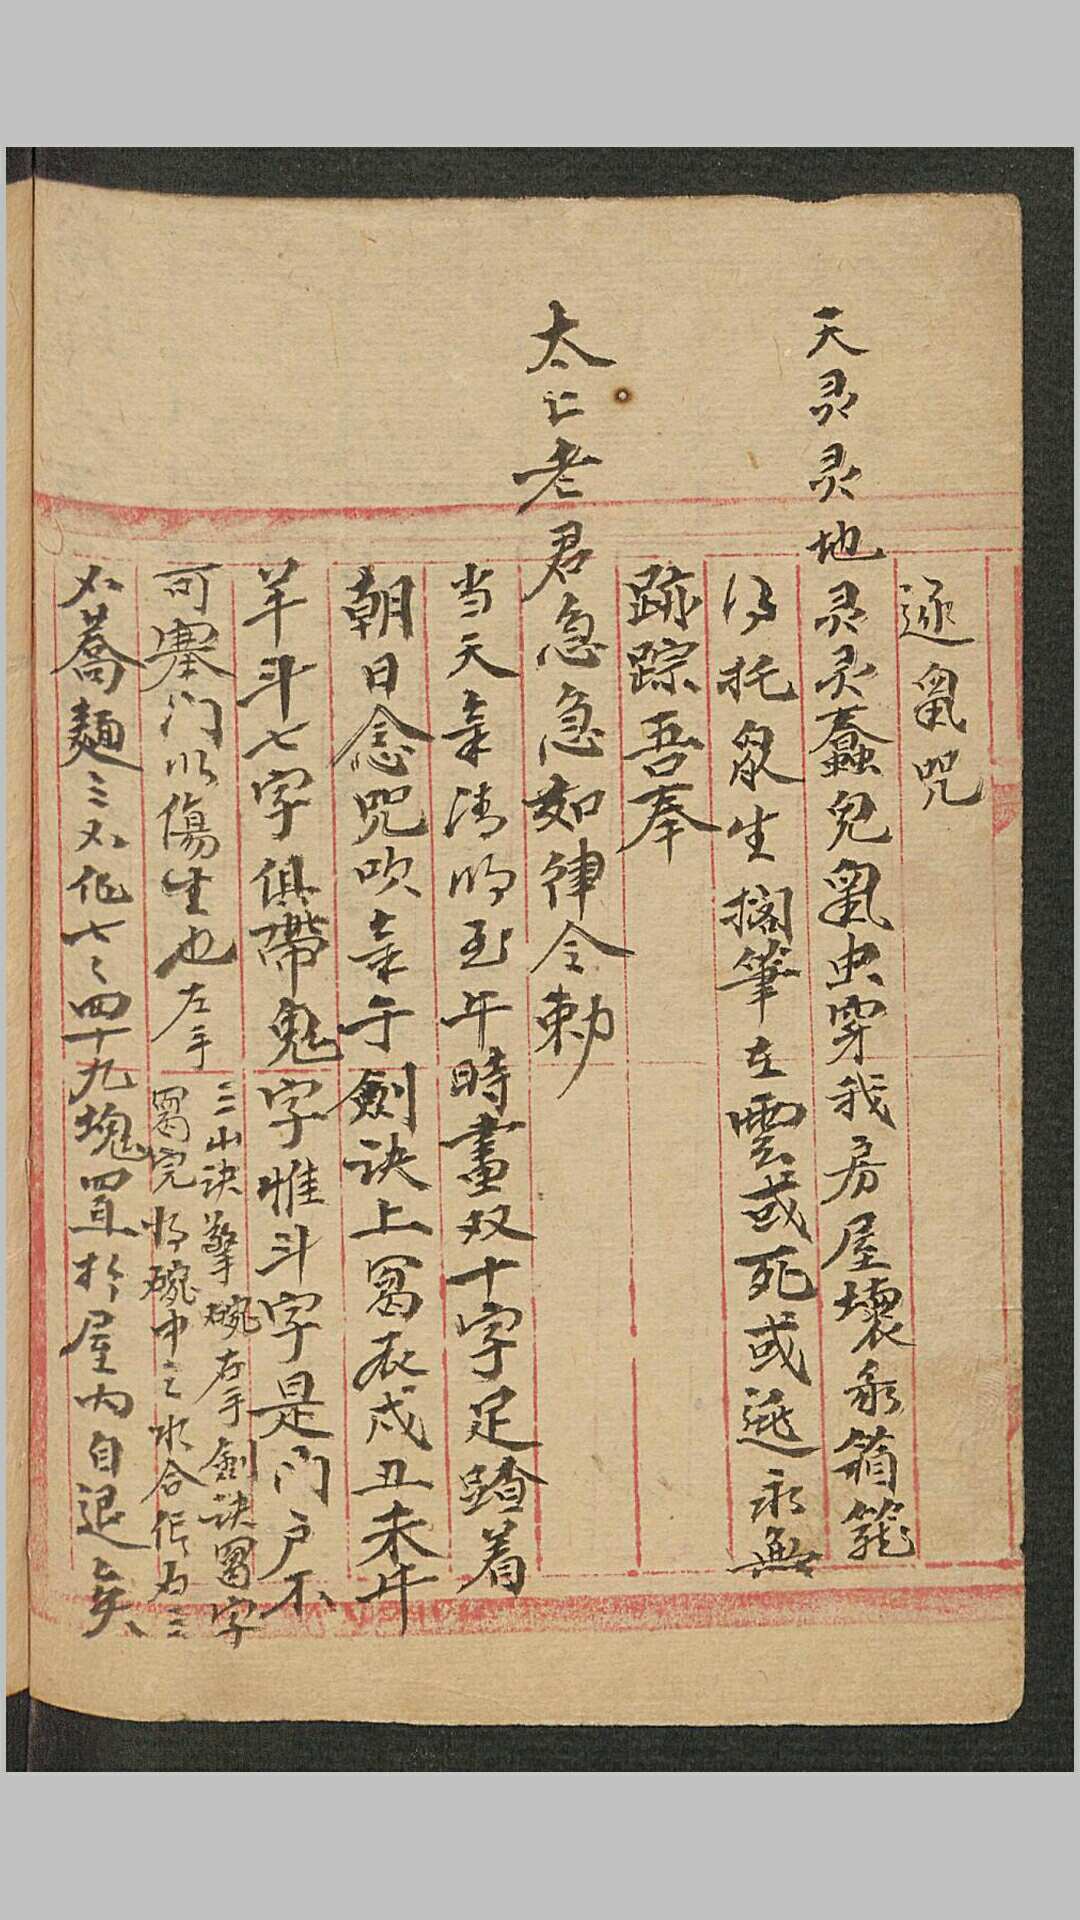 逐鼠咒
天灵灵地灵灵蠢児鼠虫穿我房屋壞我箱籠
托眾生搁筆在雲或死或逃永無
跡踪吾奉
太仁老君急急如律令勅
当天氣清明至午時畫双十字足踏着
朝日念咒吹氣于劍诀上冩辰戌丑未牛
羊斗七字俱帶鬼字惟斗字是门户不
可塞门以傷生也左手
三山诀擎碗右手劍诀冩字
冩完将碗中之水合作为三
蕎麵三作七〻四十九塊置於屋内自退矣